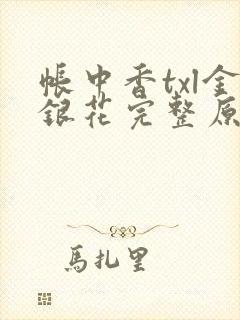 帳中香txl金
銀花完整原
馬扎里